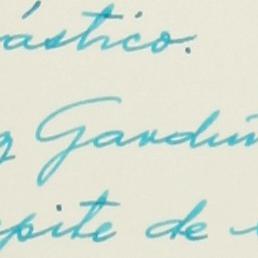 ástico.
z Garduñ
pite de